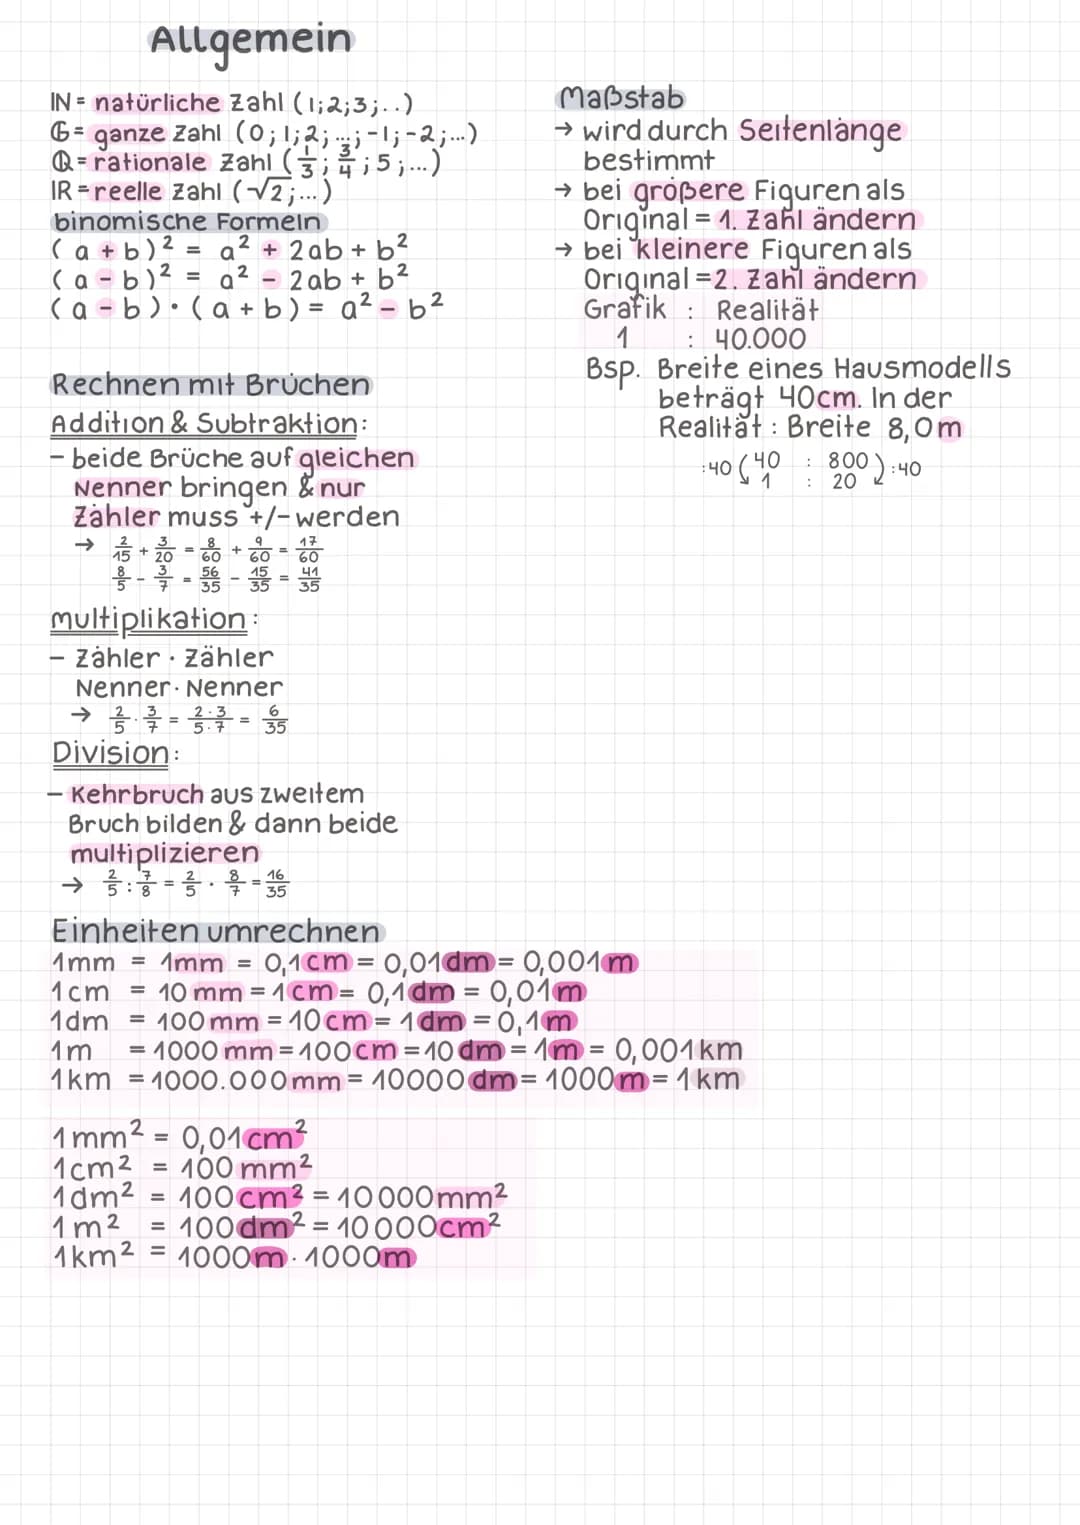 Allgemein
IN = natürliche Zahl (1;2;3;..)
G = ganze Zahl (0;1;2;...;-1;-2;...)
Q = rationale Zahl (1/3; 3/4; 5;...)
IR = reelle Zahl (√2;...)
binomische Formeln
(a + b)² = a² + 2ab + b²
(a - b)² = a² - 2ab + b²
(a - b) · (a + b) = a² - b²
Rechnen mit Brüchen
Addition & Subtraktion:
- beide Brüche auf gleichen
Nenner bringen & nur
Zähler muss +/- werden
→ 2/15 + 3/20 = 8/60 + 9/60 = 17/60
8/5 - 3/7 = 56/35 - 15/35 = 41/35
multiplikation:
- Zähler · Zähler
Nenner · Nenner
→ 2/5 · 3/7 = 2·3/5·7 = 6/35
Division:
- Kehrbruch aus zweitem
Bruch bilden & dann beide
multiplizieren
→ 2/5 : 7/8 = 2/5 · 8/7 = 16/35
Maßstab
→ wird durch Seitenlänge
bestimmt
→ bei größere Figuren als
Original = 1. Zahl ändern
→ bei kleinere Figuren als
Original = 2. Zahl ändern
Grafik : Realität
1 : 40.000
Bsp. Breite eines Hausmodells
beträgt 40cm. In der
Realität : Breite 8,0m
:40 ( 40 : 800 ) :40
1 : 20
Einheiten umrechnen
1mm = 1mm = 0,1cm = 0,01dm = 0,001m
1cm = 10mm = 1cm = 0,1dm = 0,01m
1dm = 100mm = 10cm = 1dm = 0,1m
1m = 1000mm = 100cm = 10dm = 1m = 0,001km
1km = 1000.000mm = 10000dm = 1000m = 1km
1mm² = 0,01cm²
1cm² = 100mm²
1dm² = 100cm² = 10000mm²
1m² = 100dm² = 10000cm²
1km² = 1000m · 1000m